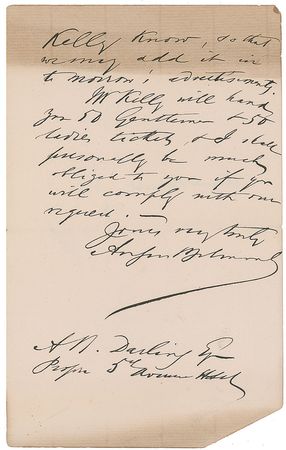 Kelly Know, so that
we may add it in
to morrow's advertisements.
Mr Kelly will hand
you 50 Gentlemen & 50
ladies tickets & I shall
personally be much
obliged to you if you
will comply with our
request. —
Yours very truly
August Belmont
A. B. Darling Esq
Propr 5th Avenue Hotel